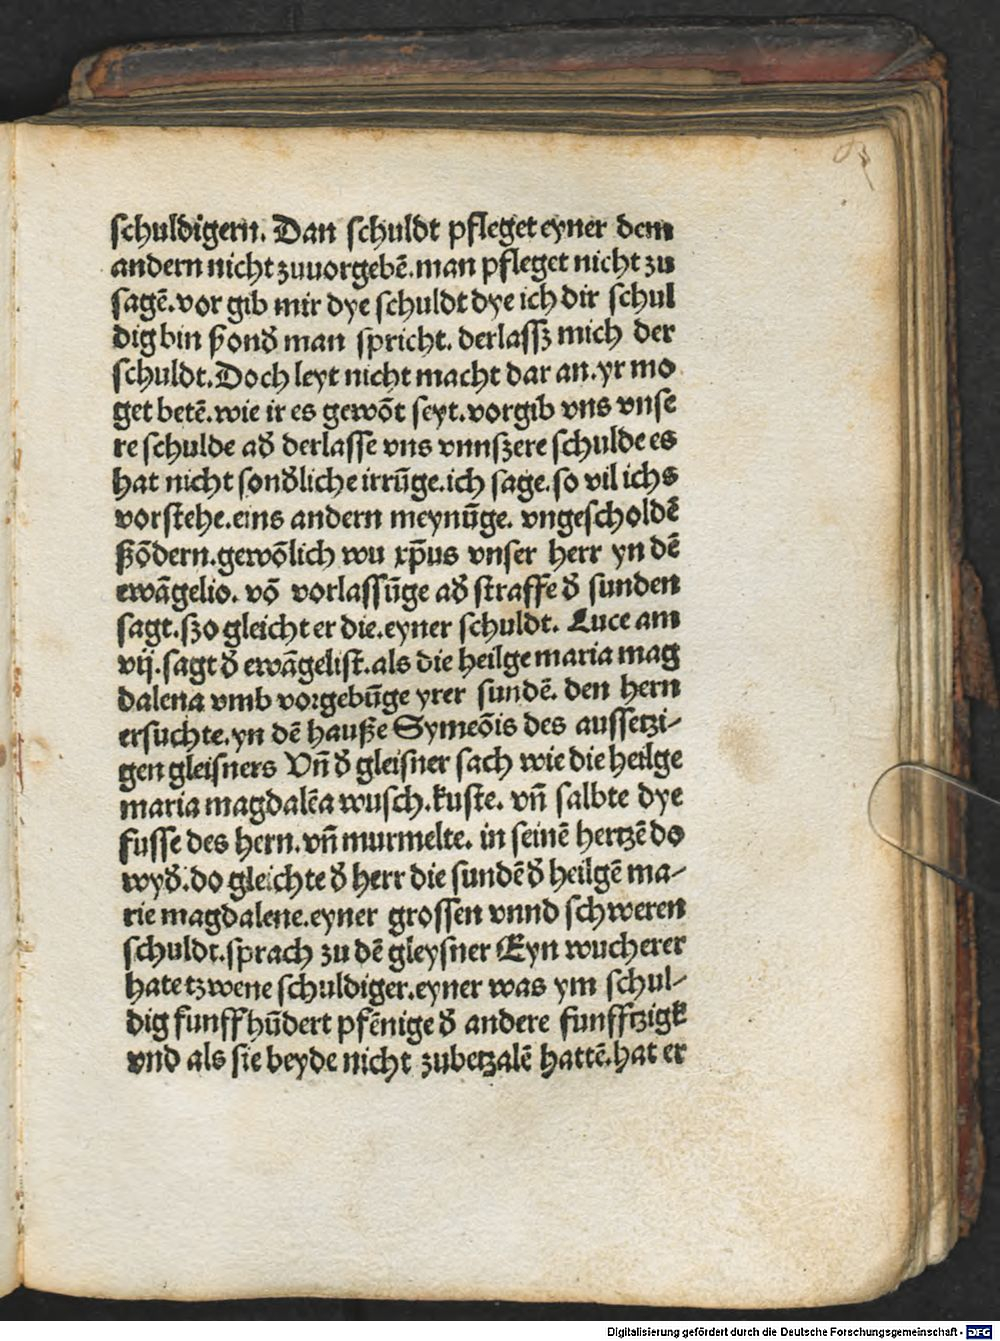 ſchuldigern. Dan ſchuldt pfleget eyner dem
andern nicht zuuorgebē. man pfleget nicht zu
ſagē. vor gib mir dye ſchuldt dye ich dir ſchul
dig bin ßonđ man ſpricht. derlaſſz mich der
ſchuldt. Doch leyt nicht macht dar an. yr mo
get betē. wie ir es gewōt ſeyt. vorgib vns vnſe
re ſchulde ađ derlaſſe vns vnnſzere ſchulde es
hat nicht ſonđliche irrūge. ich ſage. ſo vil ichs
vorſtehe. eins andern meynūge. vngeſcholdē
ßōdern. gewōlich wu xp̄us vnſer herr yn dē
ewāgelio. vō vorlaſſūge ađ ſtraffe đ ſunden
ſagt. ſzo gleicht er die. eyner ſchuldt. Luce am
vij. ſagt đ ewāgeliſt. als die heilge maria mag
dalena vmb vorgebūge yrer ſundē. den hern
erſuchte. yn dē hauße Symeōis des auſſetzi-
gen gleiſners Vn̄ đ gleiſner ſach wie die heilge
maria magdalēa wuſch. kuſte. vn̄ ſalbte dye
fuſſe des hern. vn̄ murmelte. in ſeinē hertzē do
wyđ. do gleichte đ herr die ſundē đ heilgē ma-
rie magdalene. eyner groſſen vnnd ſchweren
ſchuldt. ſprach zu dē gleyſner Eyn wucherer
hate tzwene ſchuldiger. eyner was ym ſchul-
dig funffhūdert pfēnige đ andere funfftzigk
vnd als ſie beyde nicht zubetzalē hattē. hat er
Digitalisierung gefördert durch die Deutsche Forschungsgemeinschaft - DFG